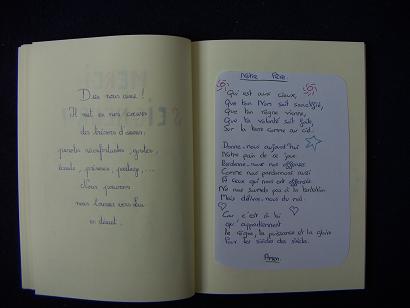 Dieu nous aime !
Il met en nos cœurs
des trésors d'amour,
paroles réconfortantes, gestes,
écoute, présence, partage, ...
Nous pouvons
nous tourner vers Lui
MERCI
Notre Père
Qui es aux cieux,
Que ton Nom soit sanctifié,
Que ton règne vienne,
Que ta volonté soit faite,
Sur la terre comme au ciel.
Donne-nous aujourd'hui
Notre pain de ce jour
Pardonne-nous nos offenses
Comme nous pardonnons aussi
A ceux qui nous ont offensés
Ne nous soumets pas à la tentation
Mais délivre-nous du mal.
Car c'est à toi
qu'appartiennent
Le règne, la puissance et la gloire
Pour les siècles des siècles.
Amen.